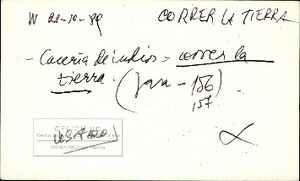 W 21-10-89 CORRER LA TIERRA
- Cacería de indios = correr la
tierra. (Jara - 156
157
USADO